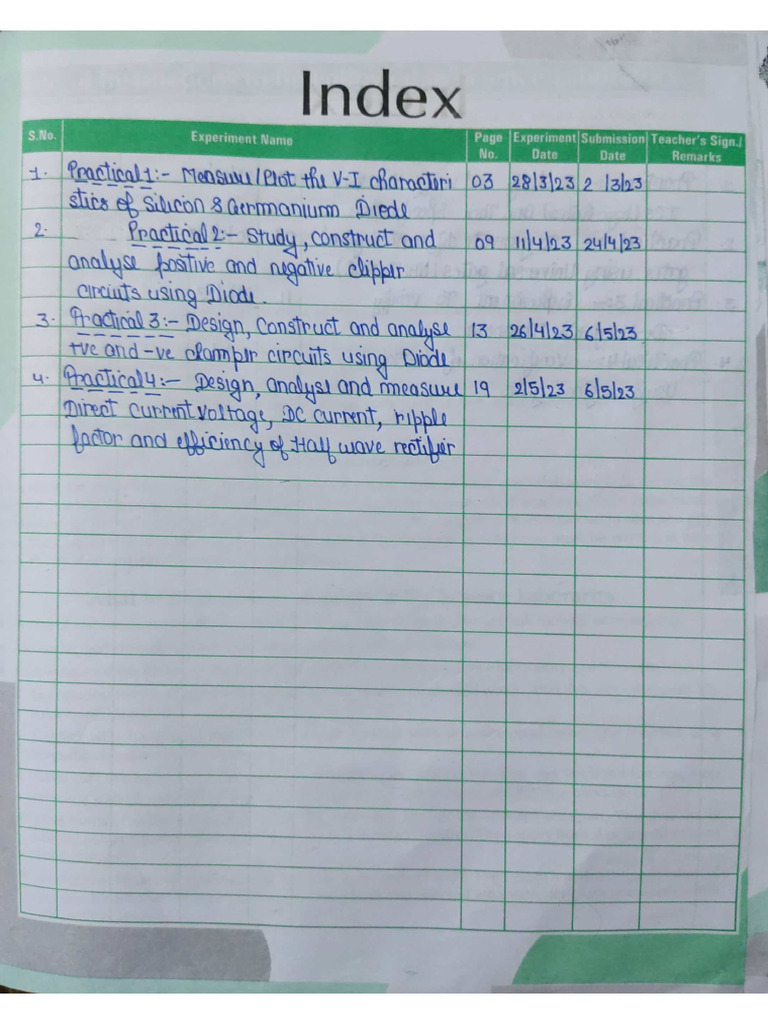 Index
S.No. Experiment Name Page No. Experiment Date Submission Date Teacher's Sign./ Remarks
1. Practical 1:- Measure/Plot the V-I characteri 03 28/3/23 2 /3/23
stics of Silicon & Germanium Diode
2. Practical 2:- Study, construct and 09 11/4/23 24/4/23
analyse positive and negative clipper
circuits using Diode.
3. Practical 3:- Design, construct and analyse 13 26/4/23 6/5/23
+ve and -ve clamper circuits using Diode
4. Practical 4:- Design, analyse and measure 19 2/5/23 6/5/23
Direct current voltage, DC current, ripple
factor and efficiency of Half wave rectifier